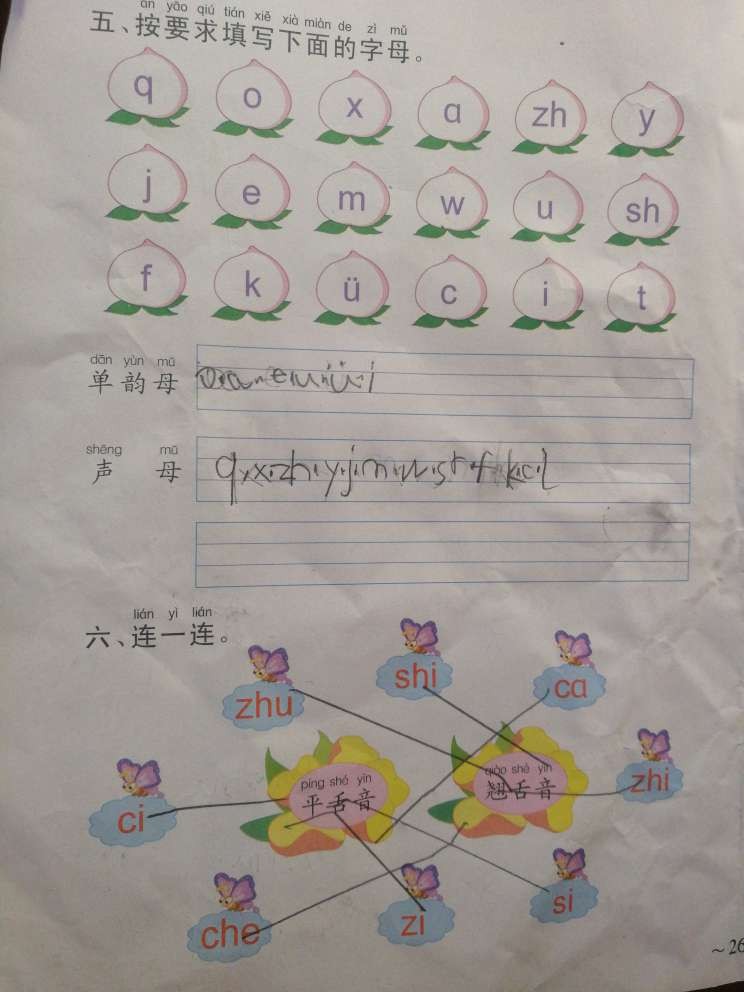 àn yāo qiú tián xiě xià miàn de zì mǔ
五、按要求填写下面的字母。
q o x ɑ zh y
j e m w u sh
f k ü c i t
dān yùn mǔ
单韵母 o.a.e.u.ü.i
shēng mǔ
声母 q.x.zh.y.j.m.w.sh.f.k.c.t
lián yì lián
六、连一连。
zhu shi cɑ
píng shé yīn qiào shé yīn
平舌音 翘舌音
ci zhi
che zi si
~26